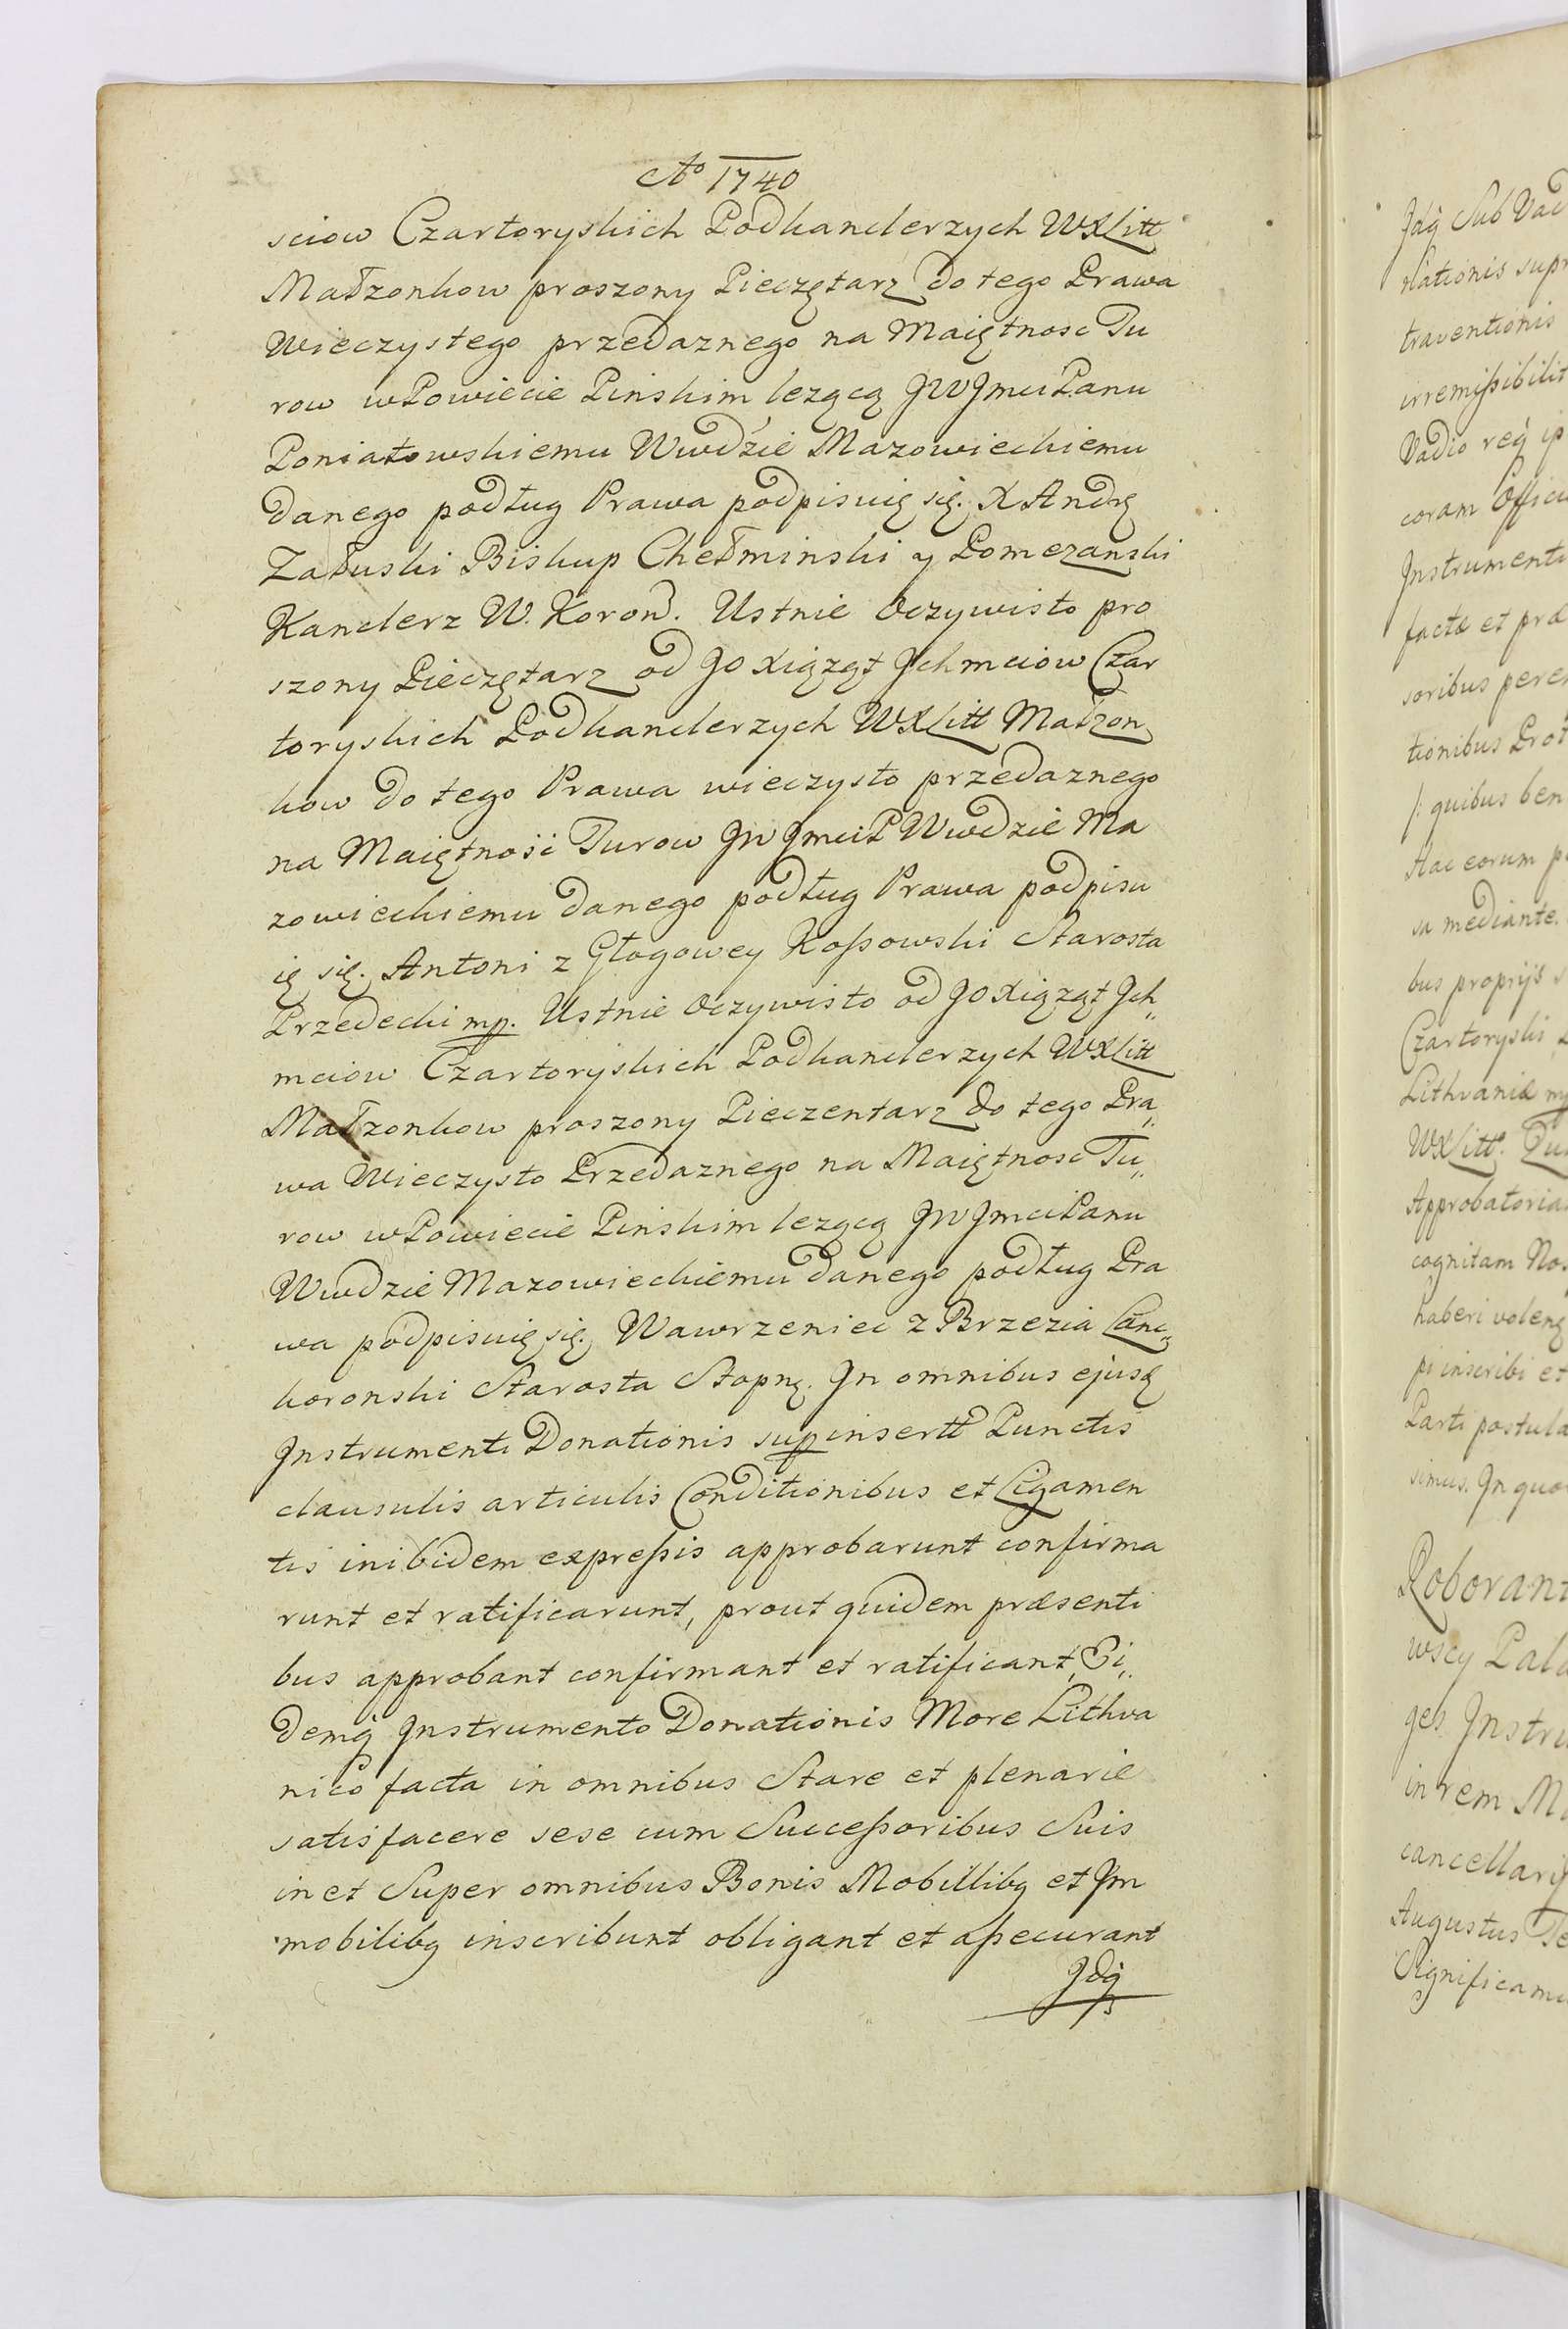 Aº 1740
sciow Czartoryskich Podkanclerzych WXLitt
Małzonkow proszony Pieczętarz do tego Prawa
Wieczystego przedaznego na Maiętnosc Tu
row w Powiecie Pinskim lezącą JW Jmci Panu
Poniatowskiemu Wwdzie Mazowieckiemu
danego podług Prawa podpisuię się. X Andrz
Załuski Biskup Chełminski y Pomezanski
Kanclerz W. Koron. Ustnie Oczywisto pro
szony Pieczętarz od JO Xiążąt Jchmciow Czar
toryskich Podkanclerzych WXLitt Małzon
kow do tego Prawa wieczysto przedaznego
na Maiętność Turow JW JmciP Wwdzie Ma
zowieckiemu danego podług Prawa podpisu
ię się. Antoni z Głogowey Koßowski Starosta
Przedecki mp. Ustnie Oczywisto od JO Xiążąt Jch„
mciow Czartoryskich Podkanclerzych WXLitt
Małzonkow proszony Pieczentarz do tego Pra„
wa Wieczysto Przedaznego na Maiętnosc Tu„
row w Powiecie Pinskim lezącą JW Jmci Panu
Wwdzie Mazowieckiemu danego podług Pra
wa podpisuię się. Wawrzeniec z Brzezia Lanc„
koronski Starosta Stopn. Jn omnibus ejusq
Jnstrumenti Donationis sup insertt Punctis
clausulis articulis Conditionibus et Ligamen
tis inibidem expreßis approbarunt confirma
runt et ratificarunt, prout quidem præsenti
bus approbant confirmant et ratificant, Ei„
demq Jnstrumento Donationis More Lithva
nico facta in omnibus Stare et plenarie
satisfacere sese cum Succeßoribus Suis
in et Super omnibus Bonis Mobillibq et Jm
mobilibq inscribunt obligant et aßecurant
Jdq
Jdq Sub Vad
nationis supr
traventionis
irremißibilit
Vadio req ip
coram Offici
Jnstrumenti
factæ et præ
soribus perem
tionibus Prot
/: quibus ben
Hac eorum p
sa mediante.
bus proprijs s
Czartoryski
Lithvaniæ mp
WXLitt.
Approbatoriam
cognitam Nos
haberi volen
pi inscribi et
Parti postula
simus. Jn quor
Roborant
wscy Pala
ges Jnstru
in rem M
cancellarij
Augustus Te
Significamu